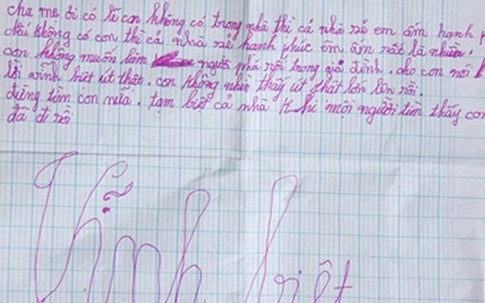 cha mẹ ơi có lẽ con không có trong nhà thì cả nhà sẽ êm ấm hạnh p
nếu không có con thì cả nhà sẽ hạnh phúc êm ấm rất là nhiều.
con không muốn làm người phá rối trong gia đình. cho con nói
lời vĩnh biệt út thất. con không nhìn thấy út thất lớn lên rồi.
đừng tìm con nữa. tạm biệt cả nhà khi mọi người tìm thấy con
đã đi rồi
Vĩnh biệt